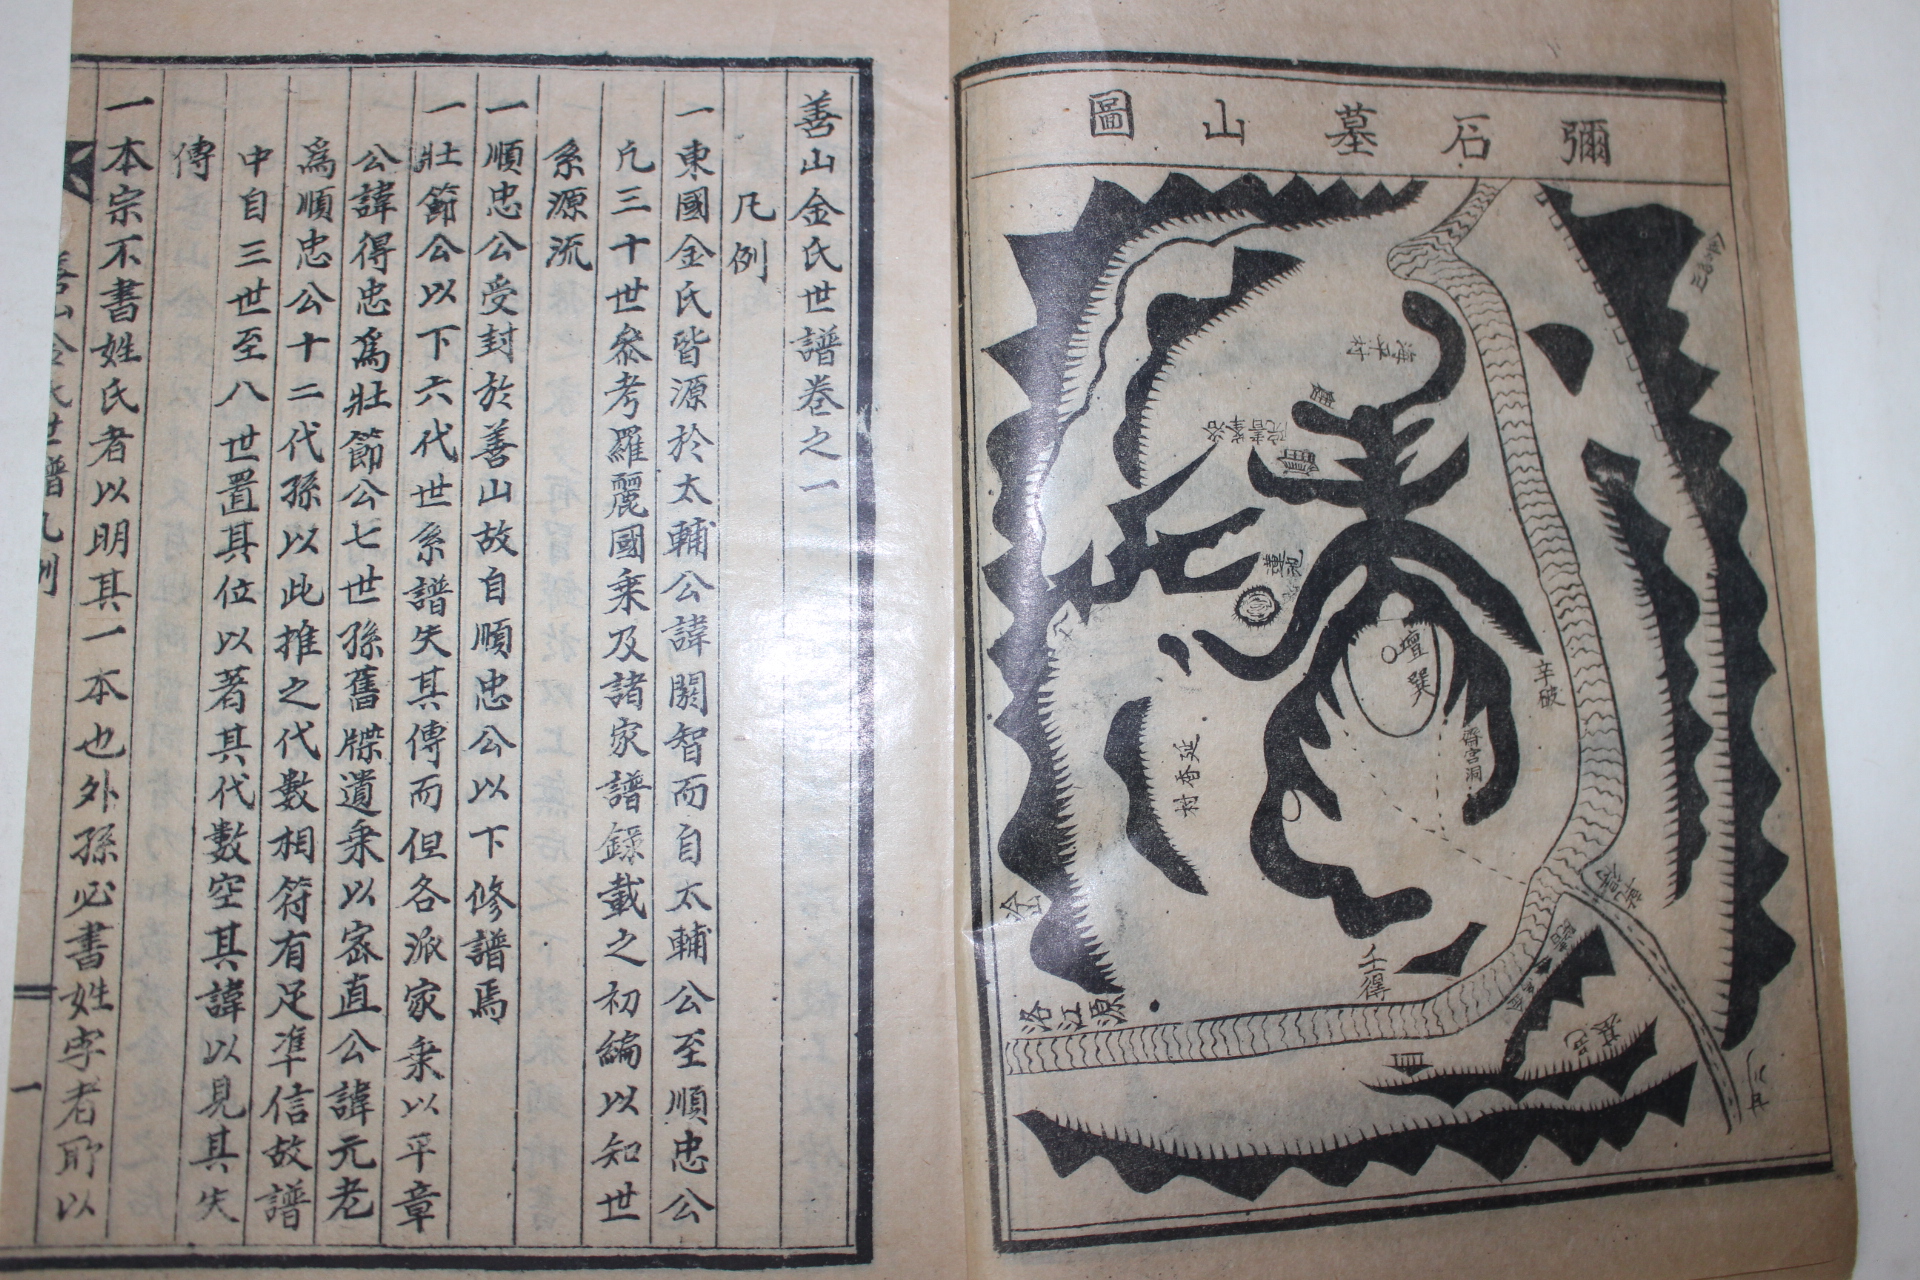 彌石墓山圖
海平村
洛峯書院
蓮池
壇
巽
辛破
齋宮洞
延香村
壬得
洛江源
善山金氏世譜卷之一
凡例
一東國金氏皆源於太輔公諱閼智而自太輔公至順忠公
凡三十世叅考羅麗國乘及諸家譜錄載之初編以知世
系源流
一順忠公受封於善山故自順忠公以下修譜焉
一壯節公以下六代世系譜失其傳而但各派家乘以平章
公諱得忠爲壯節公七世孫舊牒遺乘以密直公諱元老
爲順忠公十二代孫以此推之代數相符有足準信故譜
中自三世至八世置其位以著其代數空其諱以見其失
傳
一本宗不書姓氏者以明其一本也外孫必書姓字者所以
善山金氏世譜凡例
一